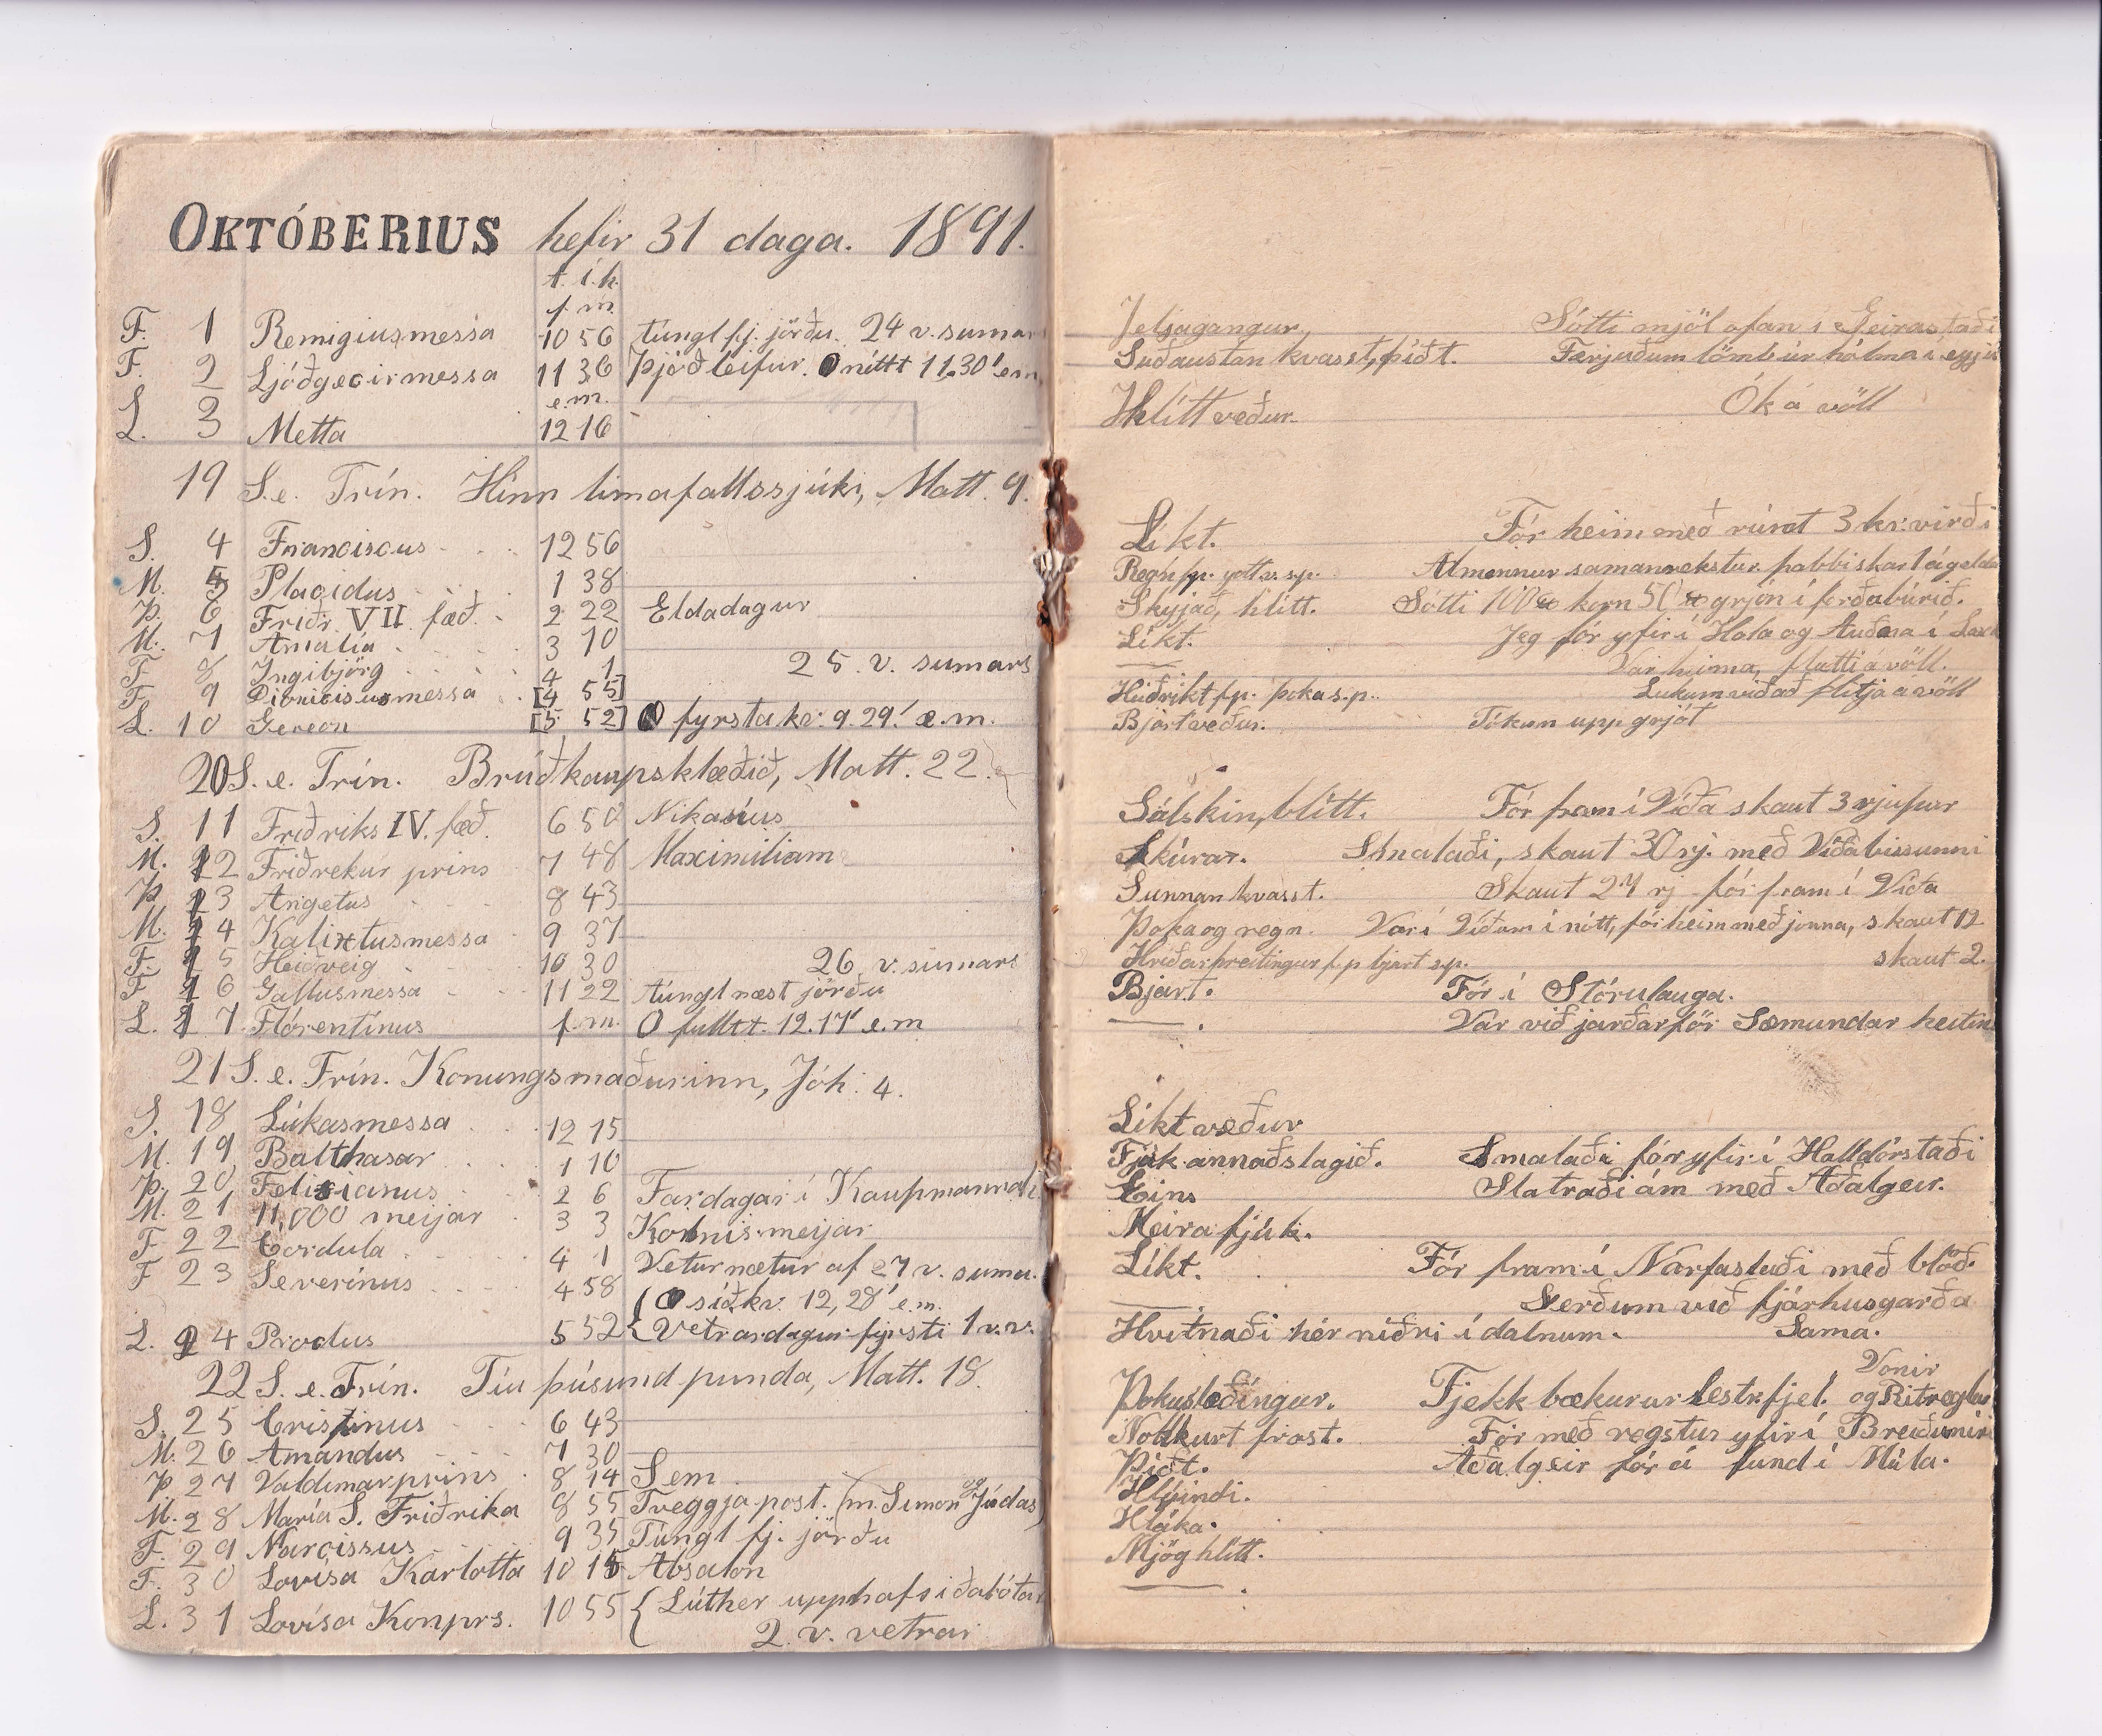 OKTÓBERIUS hefir 31 daga. 1891.
t. í. h.
f. m.
F. 1 Remigiusmessa 10 56 túngl fj. jörðu. 24 v. sumar
F. 2 Ljóðgeirmessa 11 36 Þjóðleifur. nítt 11.30' e.m.
e.m.
L. 3 Metta 12 16
19 S.e. Trín. Hinn limafallssjúki, Matt. 9.
S. 4 Franciscus 12 56
M. 5 Placidus 1 38
Þ. 6 Friðr. VII. fæð. 2 22 Eldadagur
M. 7 Amalía 3 10
F 8 Ingibjörg 4 1 25. v. sumars
F. 9 Dionisiusmessa [4 55]
L. 10 Gereon [5 52] fyrsta kv. 9.29! e.m.
20 S. e. Trín. Brúðkaupsklæðið, Matt. 22.
S. 11 Friðriks IV. fæð. 6 50 Nikasíus
M. 12 Friðrekur prins 7 48 Maximiliam
Þ. 13 Angelus 8 43
M. 14 Kalixtusmessa 9 37
F. 15 Heiðveig 10 30 26. v. sumars
F 16 Gallusmessa 11 22 túngl næst jörðu
L. 17 Flórentínus f.m. O fullt. 12.17' e.m
21 S. e. Trín. Konungsmaðurinn, Jóh. 4.
S. 18 Lúkasmessa 12 15
M. 19 Balthasar 1 10
Þ. 20 Felicianus 2 6 Fardagar í Kaupmannah
M. 21 11,000 meyjar 3 3 Kolnismeyjar
F 22 Cordula 4 1 Veturnætur af 27 v. sumu.
F 23 Severínus 4 58 síð. kv. 12,28' e.m.
L. 24 Proclus 5 52 { Vetrardagur fyrsti 1 v.v.
22 S. e. Trín. Tíu þúsund punda, Matt. 18.
S. 25 Crispinus 6 43
M. 26 Amandus 7 30
Þ 27 Valdimar prins 8 14 Sem
M. 28 María S. Friðrika 8 55 Tveggja post. (m. Símon og Júdas)
F. 29 Narcissus 9 35 Túngl fj. jörðu
F. 30 Lovísa Karlotta 10 15 Absalon
L. 31 Lovísa Konprs. 10 55 { Lúther upphaf siðabóta
2. v. vetrar
Jeljagangur. Sótti mjöl ofan í Geirastaði
Suðaustan kvasst, þíðt. Ferjuðum lömb úr hólma í eyju
Hlítt veður. Ók á völl
Líkt. Fór heim með rúmt 3 kr. virði
Regn fp. gott vs. sp. Almennur samanrekstur pabbi skar
Skyjað, hlítt. Sótti 100 korn 50 grjón í forðabúrið.
Líkt. Jeg fór yfir í Hóla og Auðna í Lax
Var heima, flutti á völl.
Hríðrikt fp. þoka s.p. Lukum við að flitja á völl
Bjart veður. Tókum upp grjót
Sólskin, blítt. Fór fram í Víða skaut 3 rjúpur
Skúrar. Smalaði, skaut 30 rj. með Víðabissunni
Sunnan kvasst. Skaut 27 rj fór fram í Víða
Þoka og regn. Var í Víðum í nótt, fór heim með jónna, skaut 12
Hríðarhreitingur f.p bjart s.p. skaut 2.
Bjart. Fór í Stórulauga.
— . Var við jarðarför Sæmundar heitin
Líkt veður
Fjúk annaðslagið. Smalaði fór yfir í Halldórstaði
Eins Slatraði ám með Aðalgeir.
Meira fjúk.
Líkt. Fór fram í Narfastaði með blöð.
— Gerðum við fjárhusgarða
Hvítnaði hér niðri í dalnum. Sama.
Vonir
Þokuslæðingur. Fjekk bækurar Lestr.fjel. og Ritreglur
Nokkurt frost. Fór með regstur yfir í Breiðumíri
Þíðt. Aðalgeir fór á fund í Múla.
Hlýindi.
Hláka.
Mjög hlítt.
— .